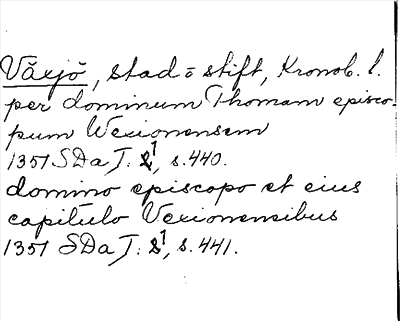 Växjö, stad o stift, Kronob. l.
per dominum Thomam episco-
pum Wexionensem
1351 SDa I: 1, s. 440.
domino episcopo et eius
capitulo Vexionensibus
1351 SDa I: 1, s. 441.